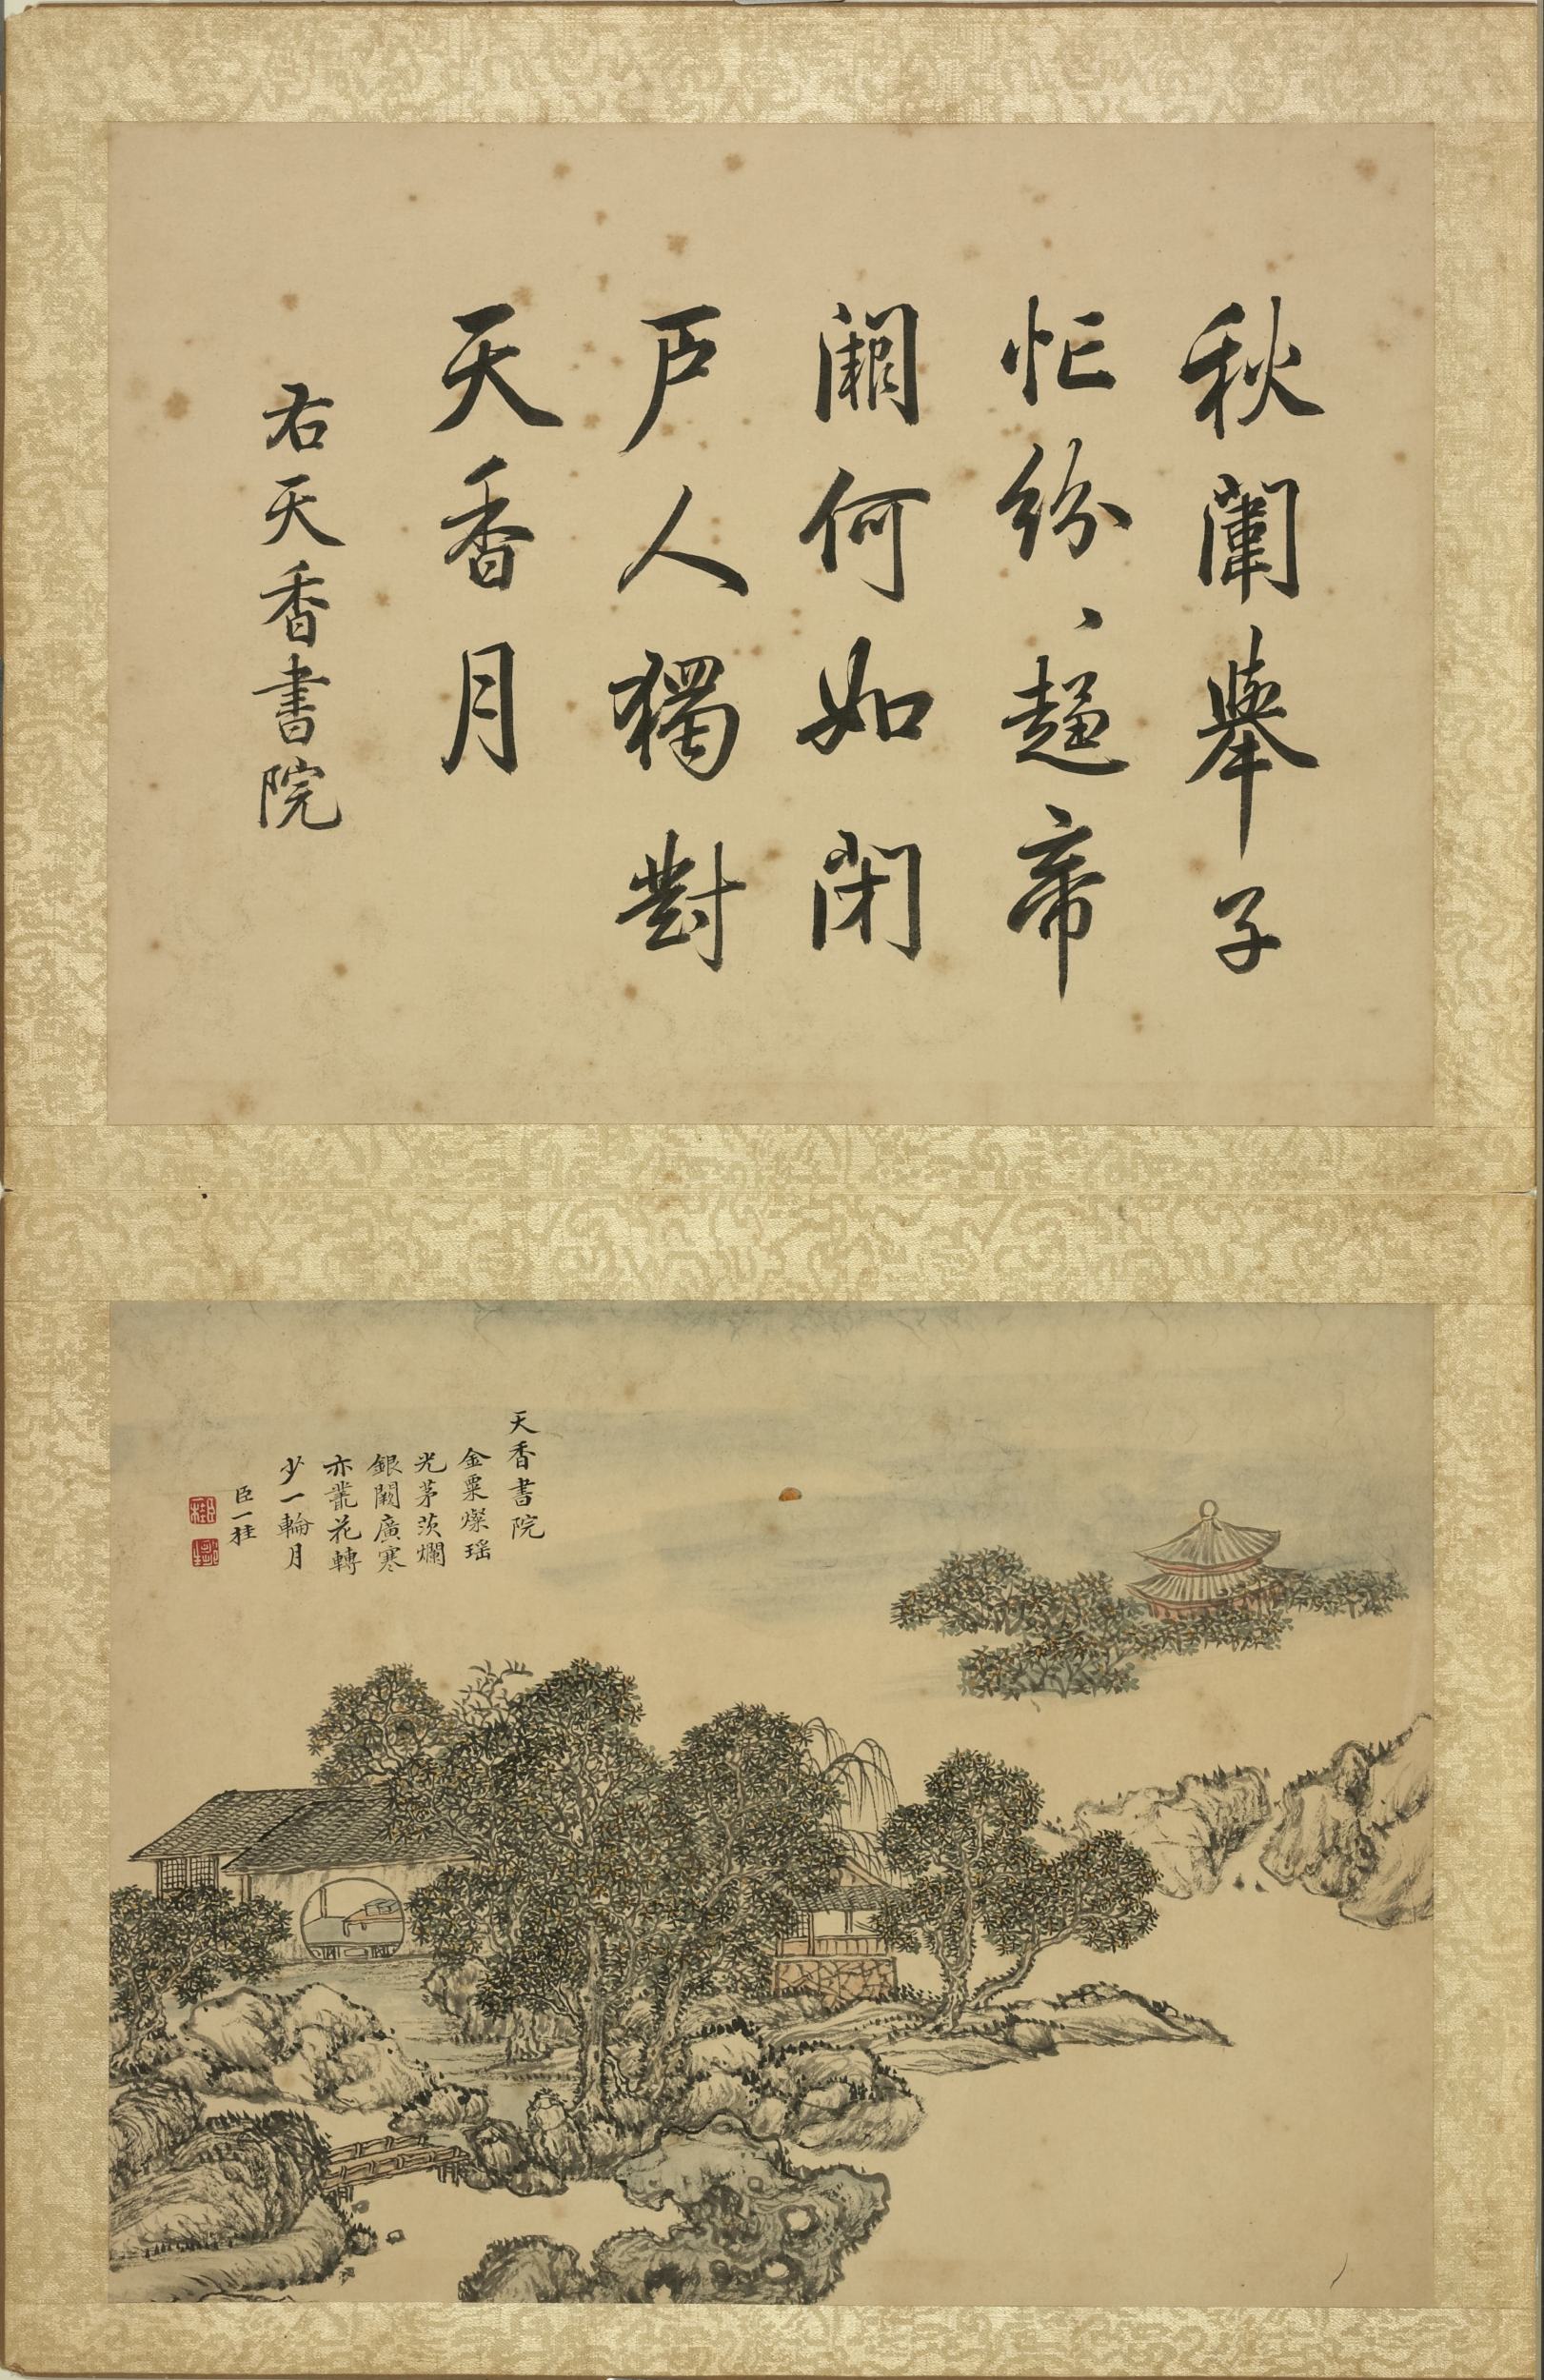 秋闈舉子
忙紛〻趨帝
闕何如閉
戶人獨對
天香月
右天香書院
天香書院
金粟燦瑤
光茅茨爛
銀闕廣寒
亦叢花轉
少一輪月
臣一桂